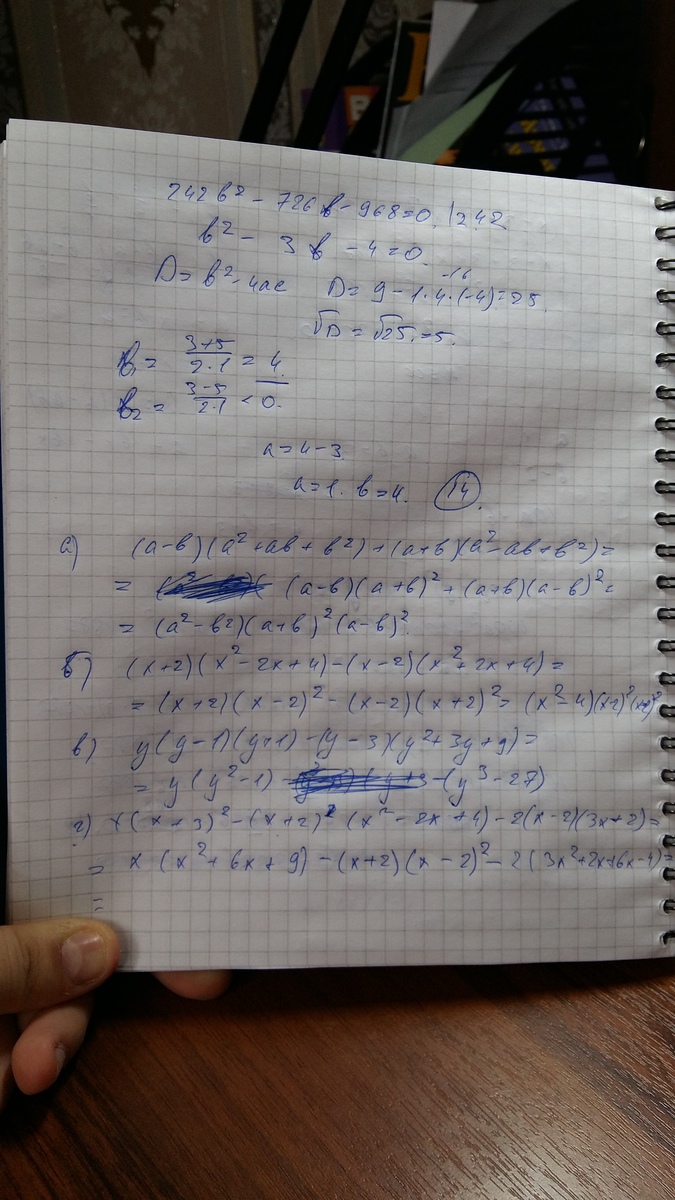 242в² - 726в - 968 = 0. | 242
в² - 3в - 4 = 0.
D = в² - 4ac D = 9 - 1·4·(-4) = 25.
-16
√D = √25. = 5.
в₁ = (3+5)/(2·1) = 4.
в₂ = (3-5)/(2·1) < 0.
a = 4 - 3.
a = 1. в = 4. 14.
а) (a-в)(a²+aв+в²)+(a+в)(a²-aв+в²)=
= (a-в)(a+в)²+(a+в)(a-в)²=
= (a²-в²)(a+в)²(a-в)².
б) (x+2)(x²-2x+4)-(x-2)(x²+2x+4)=
= (x+2)(x-2)²-(x-2)(x+2)²= (x²-4)
в) y(y-1)(y+1)-(y-3)(y²+3y+9)=
= y(y²-1) -(y³-27)
г) x(x+3)²-(x+2)(x²-2x+4)-2(x-2)(3x+2)=
= x(x²+6x+9)-(x+2)(x-2)²-2(3x²+2x+6x-4)=
=